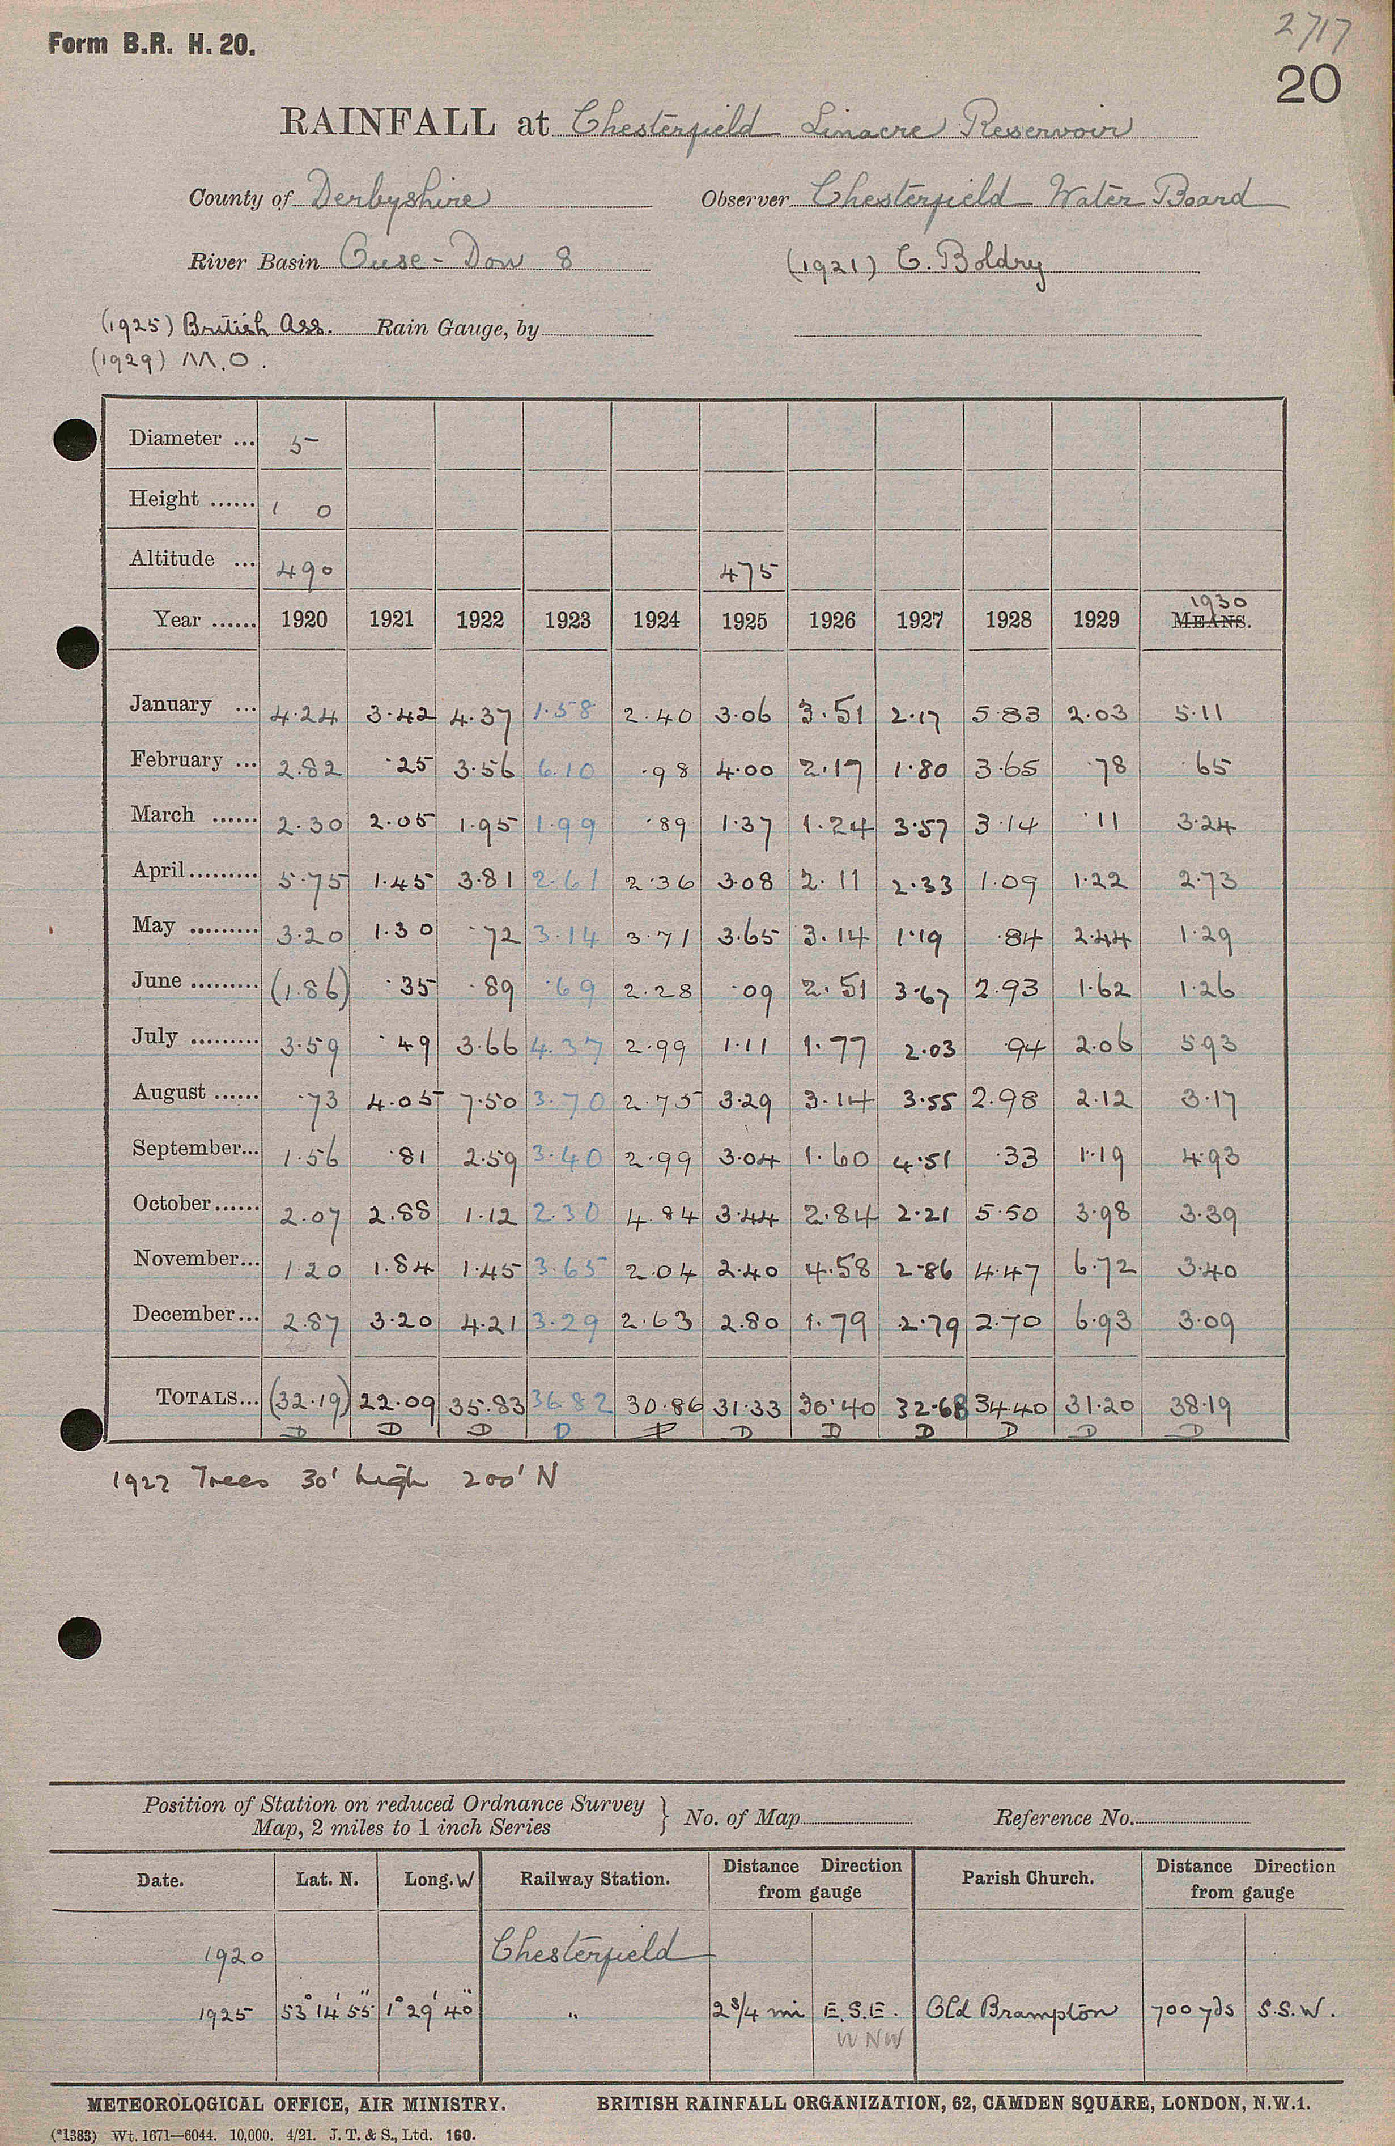 2717
Form B.R. H. 20.
20
RAINFALL at Chesterfield Linacre Reservoir
County of Derbyshire Observer Chesterfield Water Board
River Basin Ouse - Don 8 (1921) C. Boldry
(1925) British Ass. Rain Gauge, by
(1929) M.O.
Diameter ... 5
Height ...... 1 0
Altitude ... 490 475
1930
Year ...... 1920 1921 1922 1923 1924 1925 1926 1927 1928 1929 MEANS.
January ... 4.24 3.42 4.37 1.58 2.40 3.06 3.51 2.17 5.83 2.03 5.11
February ... 2.82 .25 3.56 6.10 .98 4.00 2.17 1.80 3.65 .78 .65
March ...... 2.30 2.05 1.95 1.99 .89 1.37 1.24 3.57 3.14 .11 3.24
April ......... 5.75 1.45 3.81 2.61 2.36 3.08 2.11 2.33 1.09 1.22 2.73
May ......... 3.20 1.30 .72 3.14 3.71 3.65 3.14 1.19 .84 2.44 1.29
June ......... (1.86) .35 .89 .69 2.28 .09 2.51 3.67 2.93 1.62 1.26
July ......... 3.59 .49 3.66 4.37 2.99 1.11 1.77 2.03 .94 2.06 5.93
August ...... .73 4.05 7.50 3.70 2.75 3.29 3.14 3.55 2.98 2.12 3.17
September... 1.56 .81 2.59 3.40 2.99 3.04 1.60 4.51 .33 1.19 4.93
October ...... 2.07 2.88 1.12 2.30 4.84 3.44 2.84 2.21 5.50 3.98 3.39
November... 1.20 1.84 1.45 3.65 2.04 2.40 4.58 2.86 4.47 6.72 3.40
December... 2.87 3.20 4.21 3.29 2.63 2.80 1.79 2.79 2.70 6.93 3.09
TOTALS... (32.19) 22.09 35.83 36.82 30.86 31.33 30.40 32.68 34.40 31.20 38.19
D D D D D D D D D D D
1922 Trees 30' high 200' N
Position of Station on reduced Ordnance Survey
Map, 2 miles to 1 inch Series } No. of Map Reference No.
Date. Lat. N. Long. W Railway Station. Distance Direction from gauge Parish Church. Distance Direction from gauge
1920 Chesterfield
1925 53° 14' 55" 1° 29' 40" " 2 3/4 mi E.S.E. Old Brampton 700 yds S.S.W.
WNW
METEOROLOGICAL OFFICE, AIR MINISTRY. BRITISH RAINFALL ORGANIZATION, 62, CAMDEN SQUARE, LONDON, N.W.1.
(*1383) Wt. 1671—6044. 10,000. 4/21. J. T. & S., Ltd. 160.